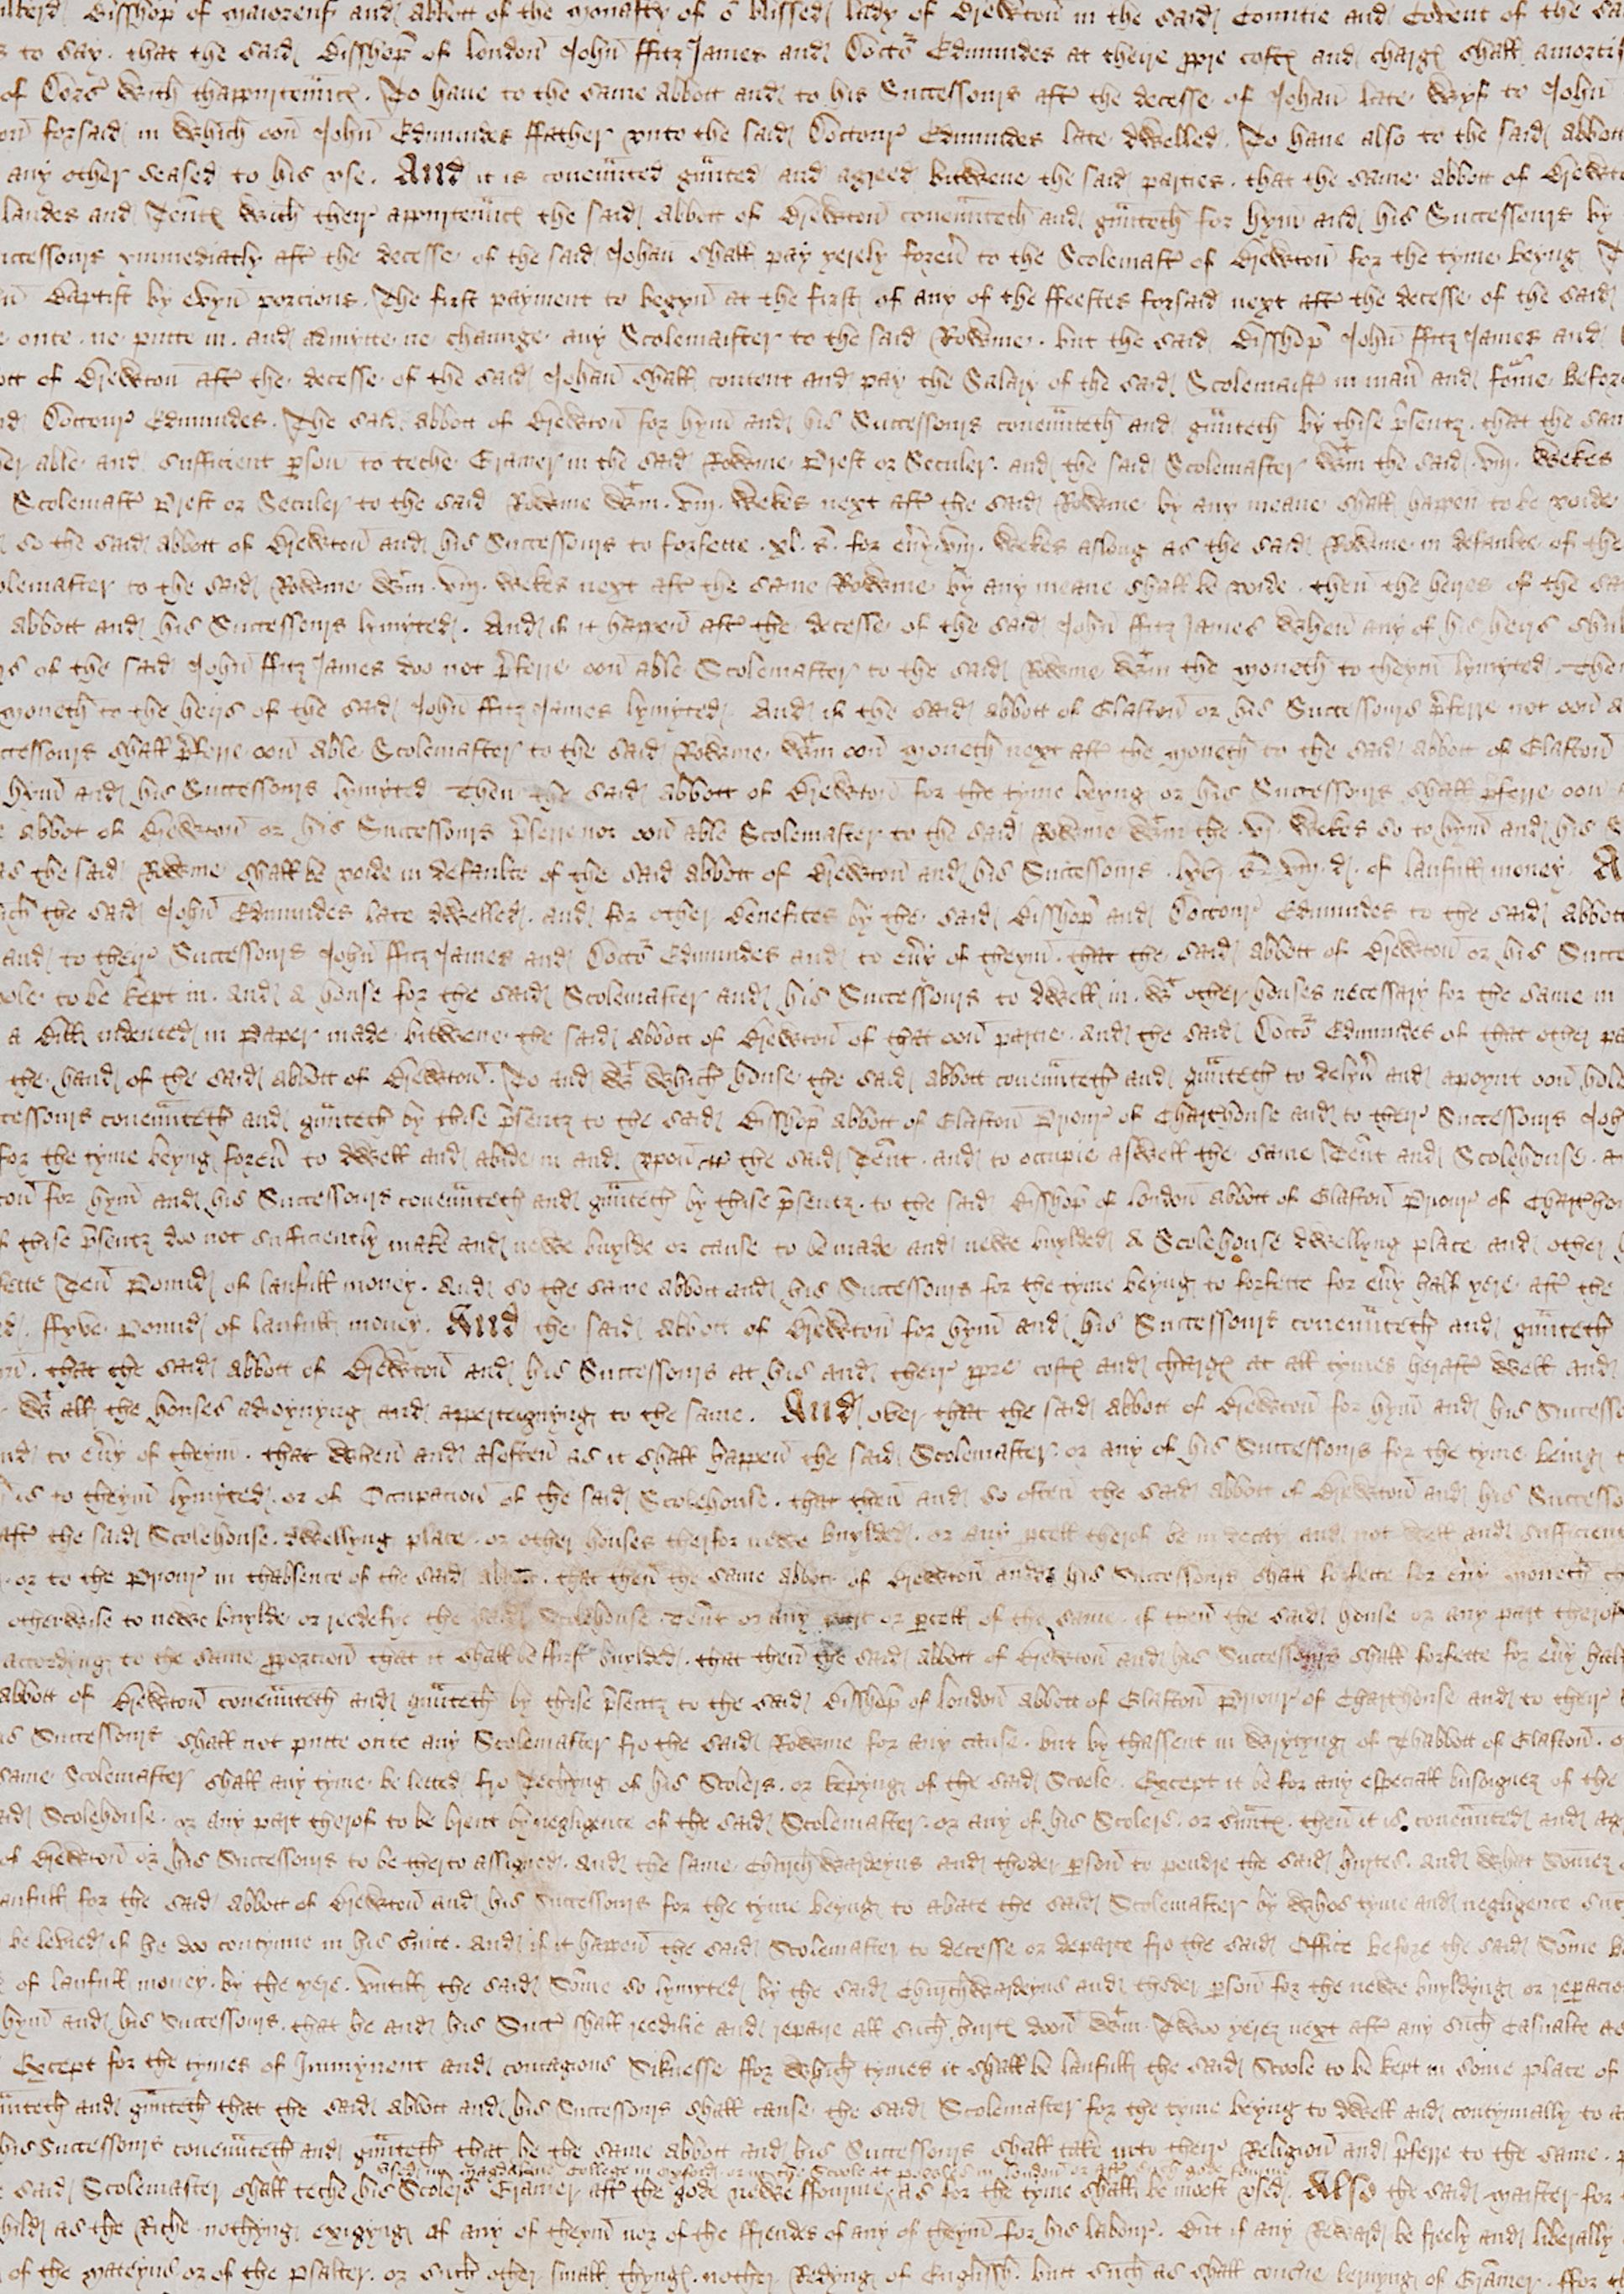 Bisshop of Maiorens and abbott of the Monasty of o blissed lady of Brewton in the said Countie and Covent of the
to say . that the said Bisshop of london John ffitz James and Docto Edmundes at theire ppre cost and charg shall amortis
of Dors with thappurtenunc . To have to the same abbott and to his Successours aft the decesse of Johan late wyf to John
forsaid in which oon John Edmundes ffather vnto the said Doctour Edmundes late dwelled . To have also to the said abbott
any other seased to his vse . And it is covenuted gunted and agreed bitwene the said parties . that the same abbott of Brewton
landes and Tent with their appurtenunc the said abbott of Brewton covenunteth and gunteth for hym and his Successours by
Successours ymmediatly aft the decesse of the said Johan shall pay yerely forev to the Scolemast of Brewton for the tyme beyng
Baptist by evyn porcions . The first payment to begyn at the first of any of the ffeestes forsaid next aft the decesse of the said
onte . ne putte in . and admytte ne chaunge any Scolemaister to the said Rowme . but the said Bisshop John ffitz James and
of Brewton aft the decesse of the said Johan shall content and pay the Salary of the said Scolemaist in man and fome before
Doctour Edmundes . The said abbott of Brewton for hym and his Successours covenunteth and gunteth by thise psentz . that the
able and sufficient pson to teche Gramer in the said Rowme Prest or Seculer . and the said Scolemaster wtin the said . viij . wekes
Scolemast Prest or Seculer to the said Rowme wtin . viij . wekes next aft the said Rowme by any meane shall happen to be voide
so the said abbott of Brewton and his Successours to forfette . xl . s . for evy . viij . wekes aslong as the said Rowme in defaulte of the
to the said Rowme wtin . viij . wekes next aft the same Rowme by any meane shall be voide . then the heyres of the
abbott and his Successours lymyted . And if it happen aft the decesse of the said John ffitz James when any of his heirs
of the said John ffitz James doo not pferre oon able Scolemaster to the said Rowme wtin the moneth to theym lymyted . Then
moneth to the heirs of the said John ffitz James lymyted . And if the said abbott of Glaston or his Successours pferre not oon
Successours shall pferre oon able Scolemaster to the said Rowme wtin oon moneth next aft the moneth to the said abbott of Glaston
hym and his Successours lymyted Then the said abbott of Brewton for the tyme beyng or his Successours shall pferre oon
abbot of Brewton or his Successours pferre not oon able Scolemaster to the said Rowme wtin the . vj . wekes so to hym and his
as the said Rowme shall be voide in defaulte of the said abbott of Brewton and his Successours . lxvj . s . viij . d . of laufull money .
the said John Edmundes late dwelled . and for other benefites by the said Bisshop and Doctour Edmundes to the said abbott
and to their Successours John ffitz James and Docto Edmundes and to evy of theym . that the said abbott of Brewton or his
to be kept in . and a house for the said Scolemaster and his Successours to dwell in . wt other houses necessary for the same in
a bill indented in Paper made bitwene the said abbott of Brewton of that oon partie and the said Docto Edmundes of that other
the hand of the said abbott of Brewton . To and wt which house the said abbott covenunteth and gunteth to delyv and apoynt oon
covenunteth and gunteth by thise psentz to the said Bisshop abbott of Glaston Priour of Charthouse and to their Successours
for the tyme beyng forev to dwell and abide in and vpon the said Tent . and to occupie aswell the same Tent and Scolehouse .
for hym and his Successours covenunteth and gunteth by thise psentz . to the said Bisshop of london abbott of Glaston Priour of
thise psentz doo not sufficiently make and newe buylde or cause to be made and newe buylded a Scolehouse dwellyng place and other
Ten Pound of laufull money . And so the same abbott and his Successours for the tyme beyng to forfette for evy half yere aft the
ffyve Pound of laufull money . And the said abbott of Brewton for hym and his Successours covenunteth and gunteth
that the said abbott of Brewton and his Successours at his and their ppre cost and charg at all tymes heraft well and
wt all the houses adioynyng and apperteignyng to the same . And over that the said abbott of Brewton for hym and his
to evy of theym . that when and asoften as it shall happen the said Scolemaster or any of his Successours for the tyme being
to theym lymyted . or of Occupacion of the said Scolehouse . that then and so often the said abbott of Brewton and his
aft the said Scolehouse . dwellyng place . or other houses therfor newe buylded . or any pcell therof be in decay and not well and
or to the Priour in thabsence of the said abbott . that then the same abbott of Brewton and his Successours shall forfette for evy moneth
otherwise to newe buylde or reedefye the said Scolehouse Tent or any part or pcell of the same . if then the said house or any part therof
according to the same pporcion that it shall be first buylded . that then the said abbott of Brewton and his Successours shall forfette for evy
abbott of Brewton covenunteth and gunteth by thise psentz to the said Bisshop of london abbott of Glaston Priour of Charthouse and to their
Successours shall not putte onte any Scolemaster fro the said Rowme for any cause . but by thassent in writyng of Thabbott of Glaston .
same Scolemaster shall any tyme be letted fro Techyng of his Scolers . or kepyng of the said Scole . Except it be for any especiall busoignez of the
Scolehouse . or any part therof to be brent by negligence of the said Scolemaster or any of his Scolers . or sunt . then it is covenunted and
of Brewton or his Successours to be therto assigned . And the same Chirchwardeyns and thoder pson to pondre the said hurtes . And what
for the said abbott of Brewton and his Successours for the tyme beyng to abate the said Scolemaster by whos tyme and negligence
be levied if he doo contynue in his suice . And if it happen the said Scolemaster to decesse or departe fro the said Office before the said Some
of laufull money . by the yere . vntill the said Some so lymyted by the said Churchwardeyns and thoder pson for the newe buyldyng or
hym and his Successours . that he and his Succ shall reedifie and repaire all such hurt doon wtin Twoo yerez next aft any such Casualte
Except for the tymes of Immynent and contagious Siknesse ffor which tymes it shall be laufull the said Scole to be kept in some place of
and gunteth that the said abbott and his Successours shall cause the said Scolemaster for the tyme beyng to dwell and contynually to
his Successours covenunteth and gunteth that he the same abbott and his Successours shall take into their Religion and pferre to the same .
vsed in Magdalene College in Oxford or in the Scoole at powles in london or
said Scolemaster shall teche his Scolers Gramer aft the gode newe ffourme as for the tyme shall be moost vsed . Also the said Maister for
as the Riche . nothyng exigyng of any of theym nor of the ffrendes of any of theym for his labour . But if any Reward be freely and liberally
of the Mateyns or of the psalter . or such other small thyng . nother Redyng of Englissh . but such as shall